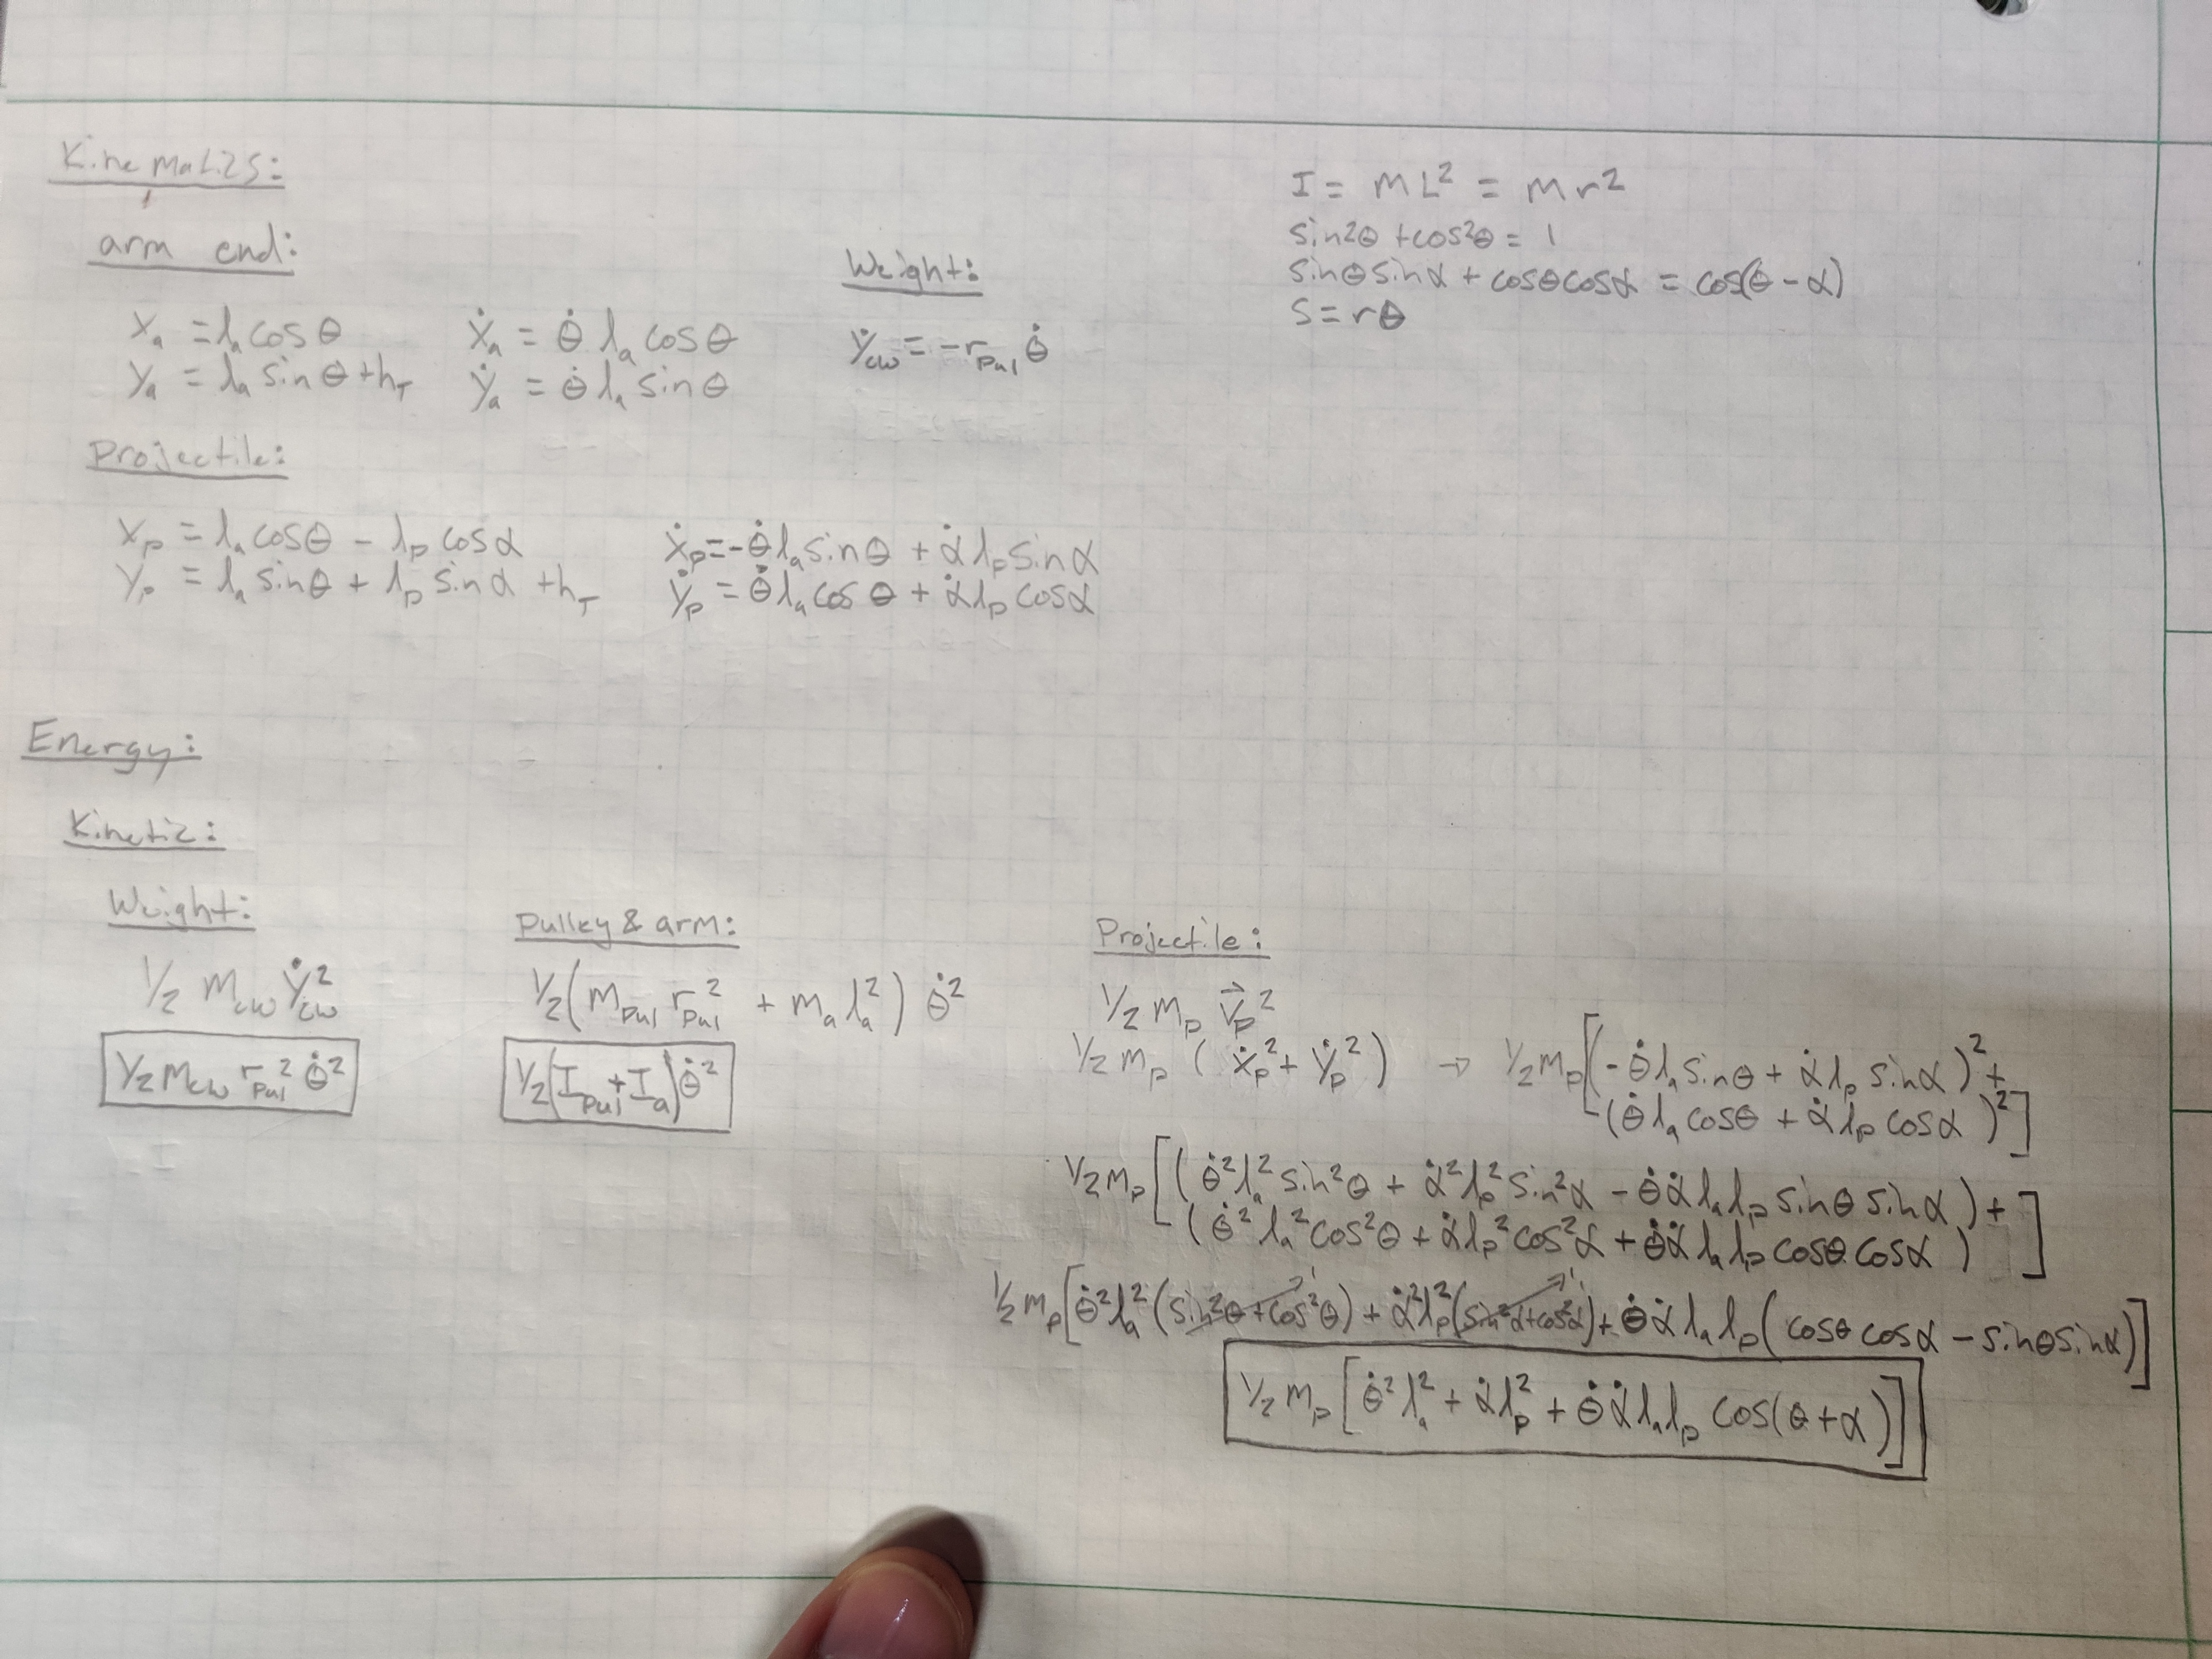 Kinematics:
arm end:
xₐ = lₐ cos θ
yₐ = lₐ sin θ + h_T
ẋₐ = θ̇ lₐ cos θ
ẏₐ = θ̇ lₐ sin θ
Weight:
ẏ_cw = -r_pul θ̇
I = mL² = mr²
sin²θ + cos²θ = 1
sinθ sinα + cosθ cosα = cos(θ - α)
S = rθ
Projectile:
x_p = lₐ cosθ - l_p cosα
y_p = lₐ sinθ + l_p sinα + h_T
ẋ_p = -θ̇ lₐ sinθ + α̇ l_p sinα
ẏ_p = θ̇ lₐ cosθ + α̇ l_p cosα
Energy:
Kinetic:
Weight:
1/2 m_cw ẏ_cw²
1/2 m_cw r_pul² θ̇²
Pulley & arm:
1/2 (m_pul r_pul² + mₐ lₐ²) θ̇²
1/2 (I_pul + Iₐ) θ̇²
Projectile:
1/2 m_p v⃗_p²
1/2 m_p (ẋ_p² + ẏ_p²) → 1/2 m_p [(-θ̇ lₐ sinθ + α̇ l_p sinα)² +
(θ̇ lₐ cosθ + α̇ l_p cosα)²]
1/2 m_p [(θ̇² lₐ² sin²θ + α̇² l_p² sin²α - θ̇ α̇ lₐ l_p sinθ sinα) +
(θ̇² lₐ² cos²θ + α̇ l_p² cos²α + θ̇ α̇ lₐ l_p cosθ cosα)]
1/2 m_p [θ̇² lₐ² (sin²θ + cos²θ) + α̇² l_p² (sin²α + cos²α) + θ̇ α̇ lₐ l_p (cosθ cosα - sinθ sinα)]
1/2 m_p [θ̇² lₐ² + α̇ l_p² + θ̇ α̇ lₐ l_p cos(θ + α)]